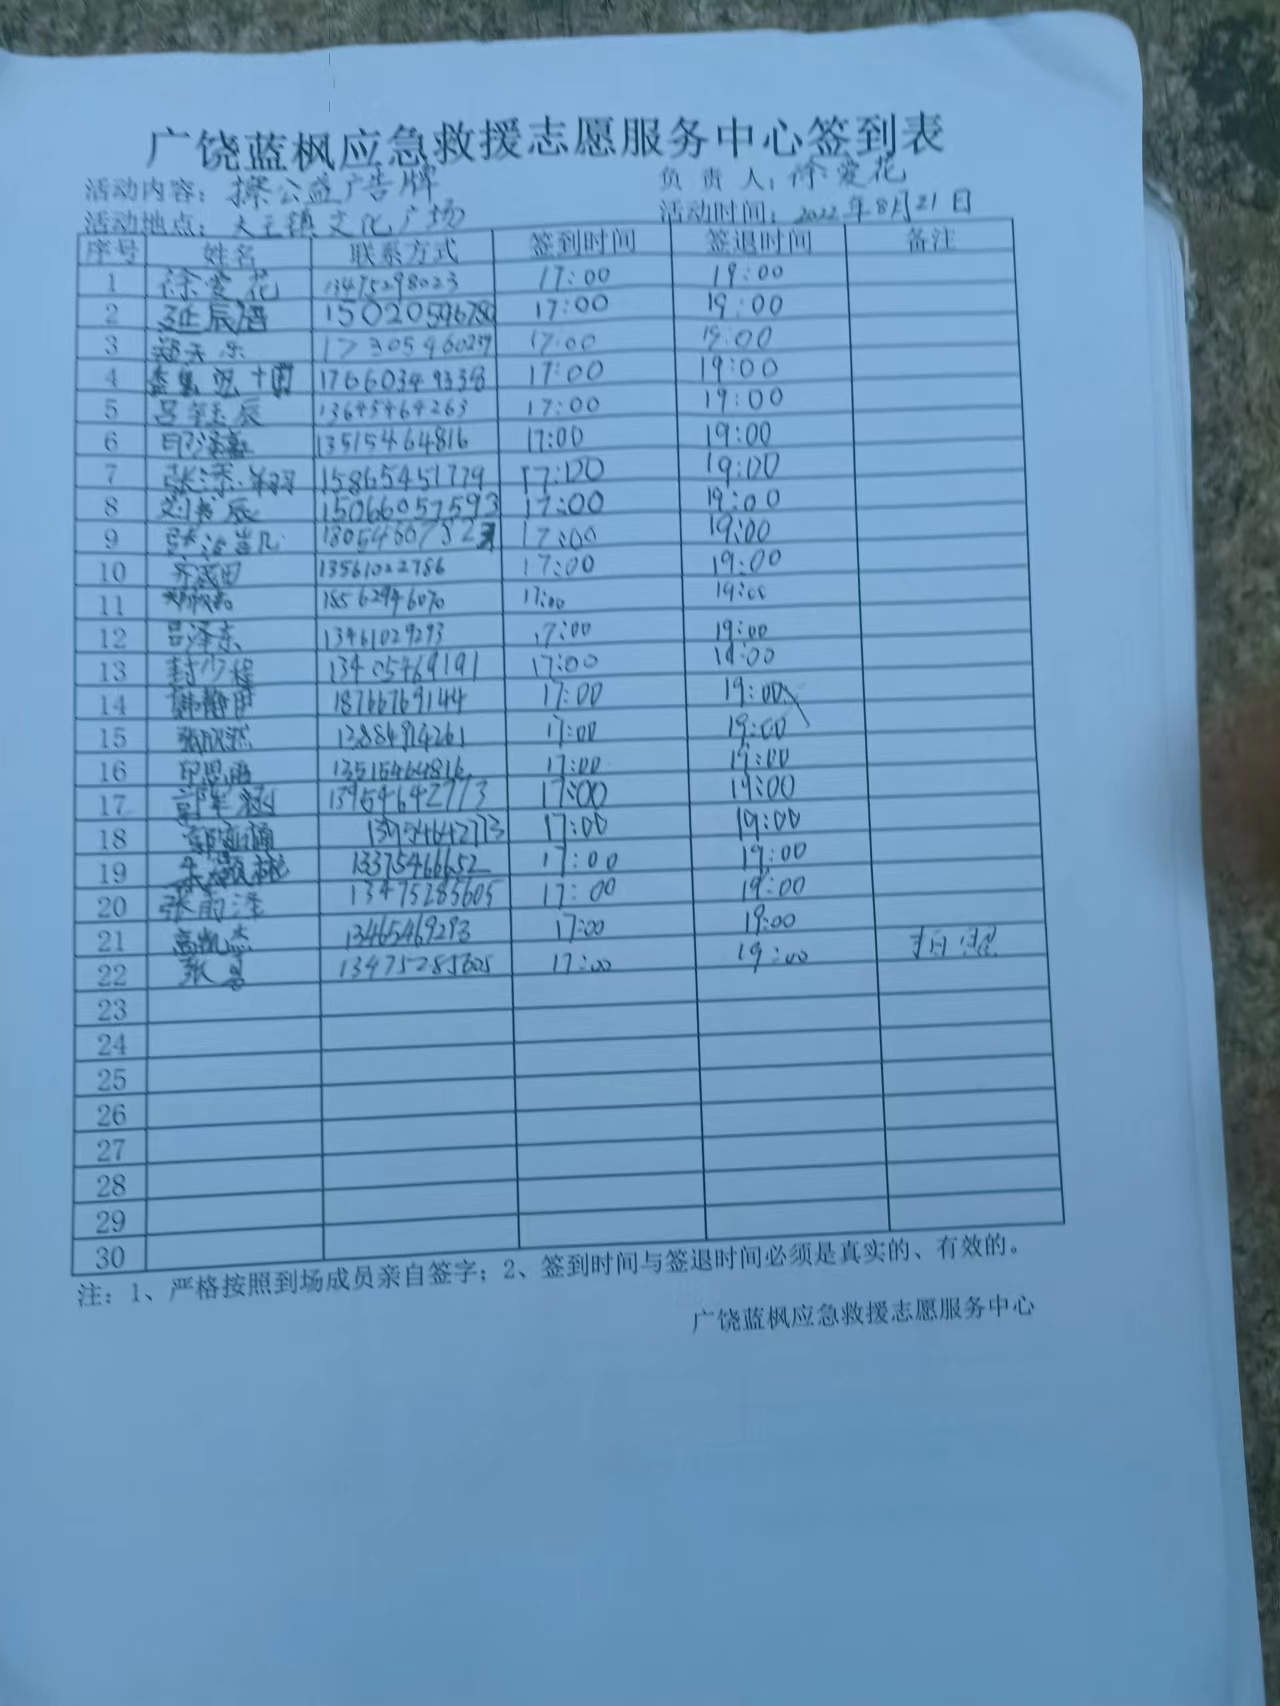 广饶蓝枫应急救援志愿服务中心签到表
活动内容：擦公益广告牌 负责人：徐爱花
活动地点：大王镇文化广场 活动时间：2022年8月21日
序号 姓名 联系方式 签到时间 签退时间 备注
1 徐爱花 13475298023 17:00 19:00
2 15020596780 17:00 19:00
3 17305460259 17:00 19:00
4 17660349338 17:00 19:00
5 13645464263 17:00 19:00
6 13515464816 17:00 19:00
7 15865451779 17:00 19:00
8 刘书辰 15066057593 17:00 19:00
9 17:00 19:00
10 13561022786 17:00 19:00
11 18562946070 17:00 19:00
12 吕泽东 13461029293 17:00 19:00
13 封少程 13405469191 17:00 19:00
14 韩静伊 18766769144 17:00 19:00
15 张欣然 17:00 19:00
16 印思雨 13515464816 17:00 19:00
17 13954642773 17:00 19:00
18 13954642773 17:00 19:00
19 13375466652 17:00 19:00
20 张雨泽 13475285605 17:00 19:00
21 高凯杰 13465469293 17:00 19:00
22 13475285605 17:00 19:00
23
24
25
26
27
28
29
30
注：1、严格按照到场成员亲自签字；2、签到时间与签退时间必须是真实的、有效的。
广饶蓝枫应急救援志愿服务中心